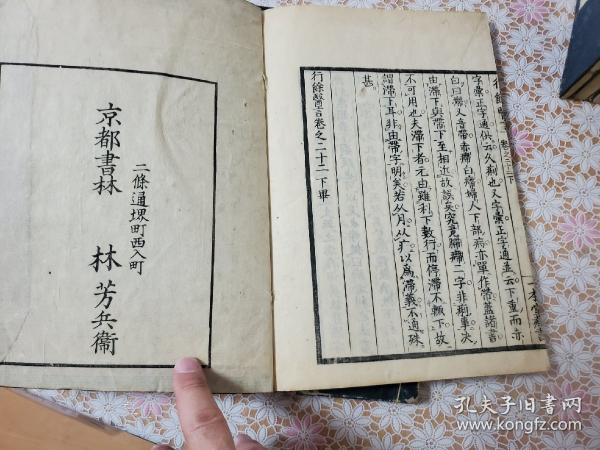 字彙正字通俱云久痢也又字彙正字通並云下重而赤
白曰𤻲又音帶赤𤻲白𤻲婦人下部病亦單作帶蓋諸書
由滯下與帶下至相近故誤矣究竟𤻲二字非痢事決
不可用也夫滯下者元由雖利下數行而停滯不頗下故
謂滯下耳非由帶字明矣若从月从疒以為滯義不通殊
甚
行餘醫言卷之二十二下畢
二條通堺町西入町
京都書林 林芳兵衞
孔夫子旧书网
www.kongfz.com